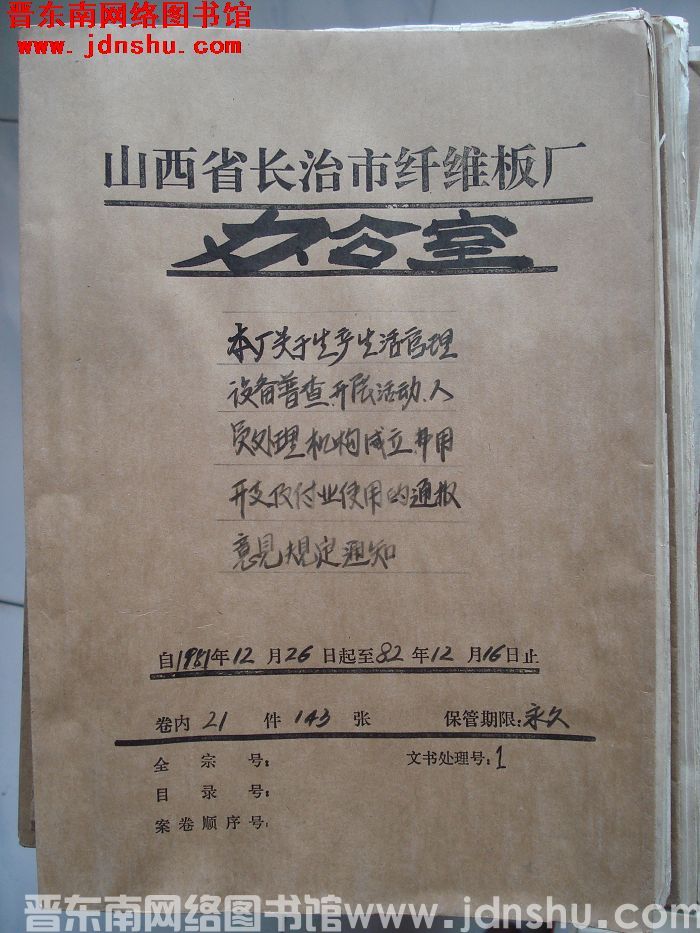 晋东南网络图书馆
www.jdnshu.com
山西省长治市纤维板厂
办公室
本厂关于生产生活管理
设备普查、开展活动、人
员处理机构成立、费用
开支及付业使用的通报
意见规定通知
自1981年12月26日起至82年12月16日止
卷内21件143张 保管期限:永久
全宗号: 文书处理号:1
目录号:
案卷顺序号:
晋东南网络图书馆 www.jdnshu.com